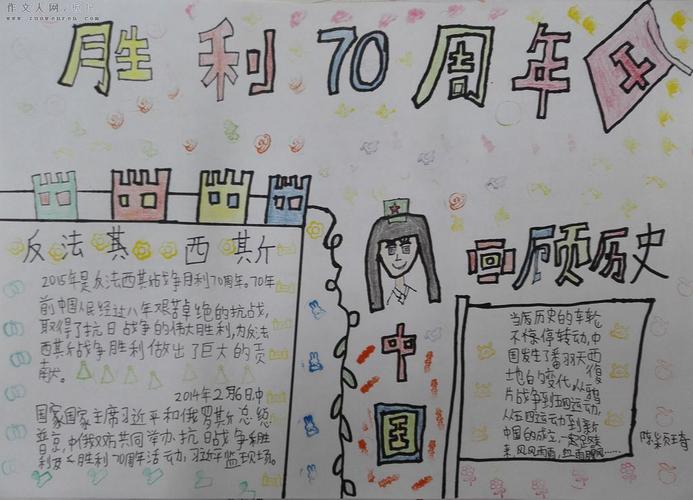 作文人网
www.zuowenren.com
胜利70周年
反法西斯
2015年是反法西其战争月利70周年。70年
前中国人民经过八年艰苦卓绝的抗战,
取得了抗日战争的伟大胜利,为反法
西其斯战争胜利做出了巨大的贡
献。
2014年2月6日中
国家国家主席习近平和俄罗其斯总统
普京,中俄双方共同举办抗日战争胜
胜利70周年活动,习近平
中国
回顾历史
当历史的车轮
不停停转动,中
国发生了番羽天西復
地白的变化,从鸦
片战争到五四运动,
从五四运动到新
中国的成立,一起走过
来,风风雨雨,
陈